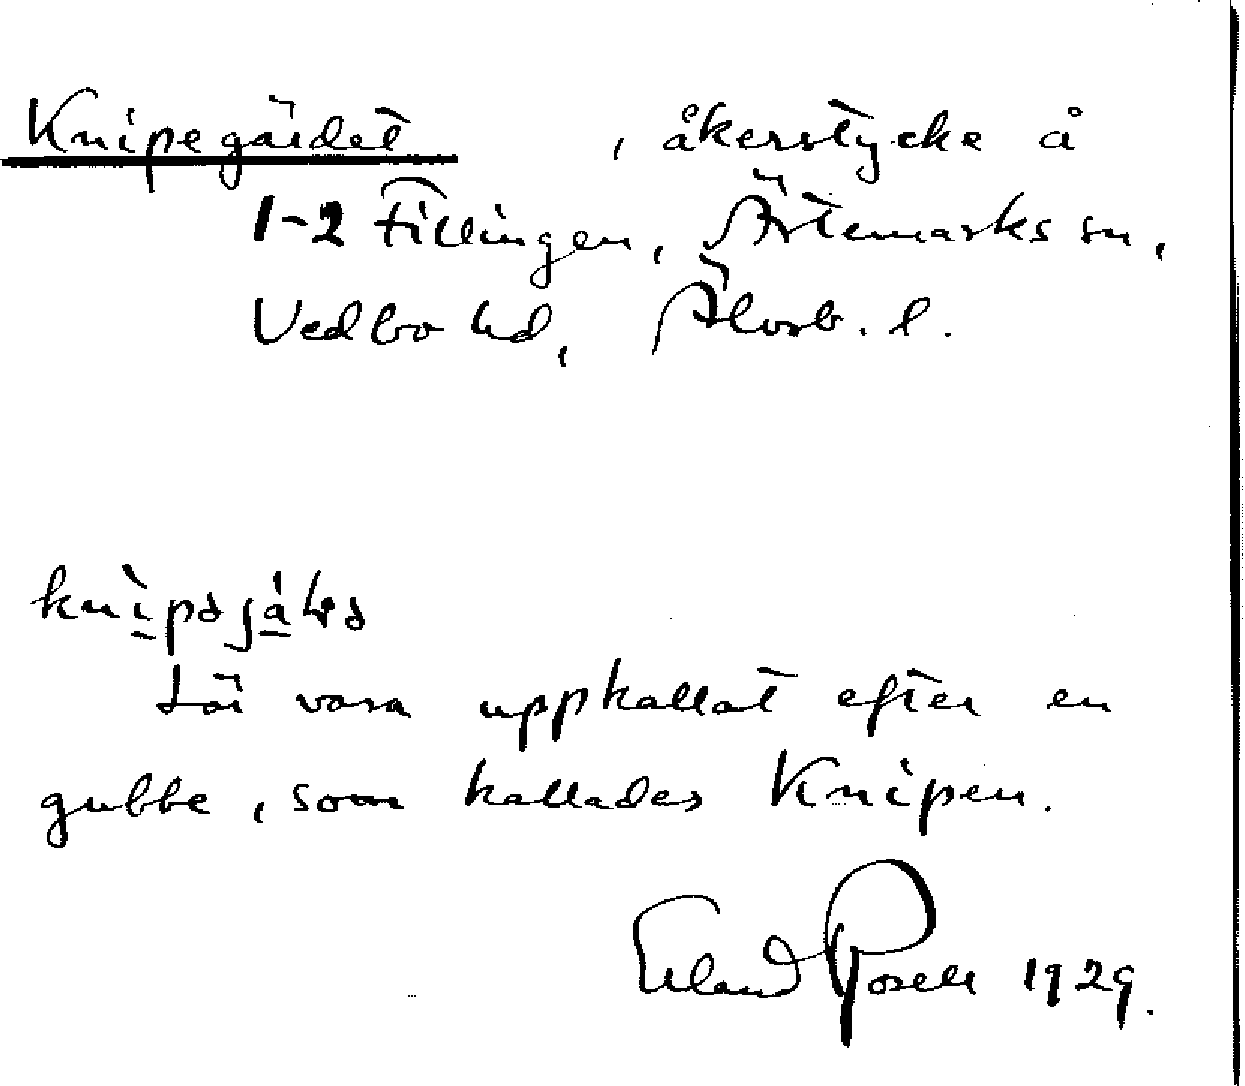 Knipegärdet , åkerstycke å
1-2 Fillingen, Ärtemarks sn,
Vedbo hd, Älvsb. l.
Lär vara uppkallat efter en
gubbe, som kallades Knipen.
Erland Rosell 1929.